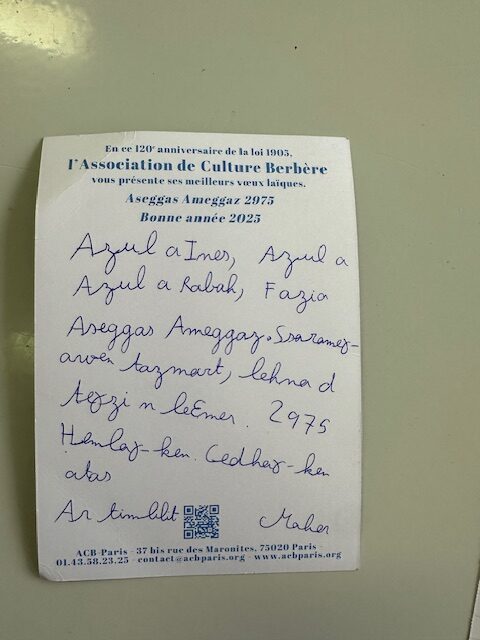 En ce 120e anniversaire de la loi 1905,
l'Association de Culture Berbère
vous présente ses meilleurs vœux laïques.
Aseggas Ameggaz 2975
Bonne année 2025
Azul a Ines, Azul a
Azul a Rabah, Fazia
Aseggas Ameggaz. Ssarameɣ-
awen tazmart, lehna d
teɣzi n leƐmer. 2975
Ḥemlaɣ-ken. Cedhaɣ-ken
atas
Ar timlilit
Maher
ACB-Paris - 37 bis rue des Maronites, 75020 Paris -
01.43.58.23.25 - contact@acbparis.org - www.acbparis.org